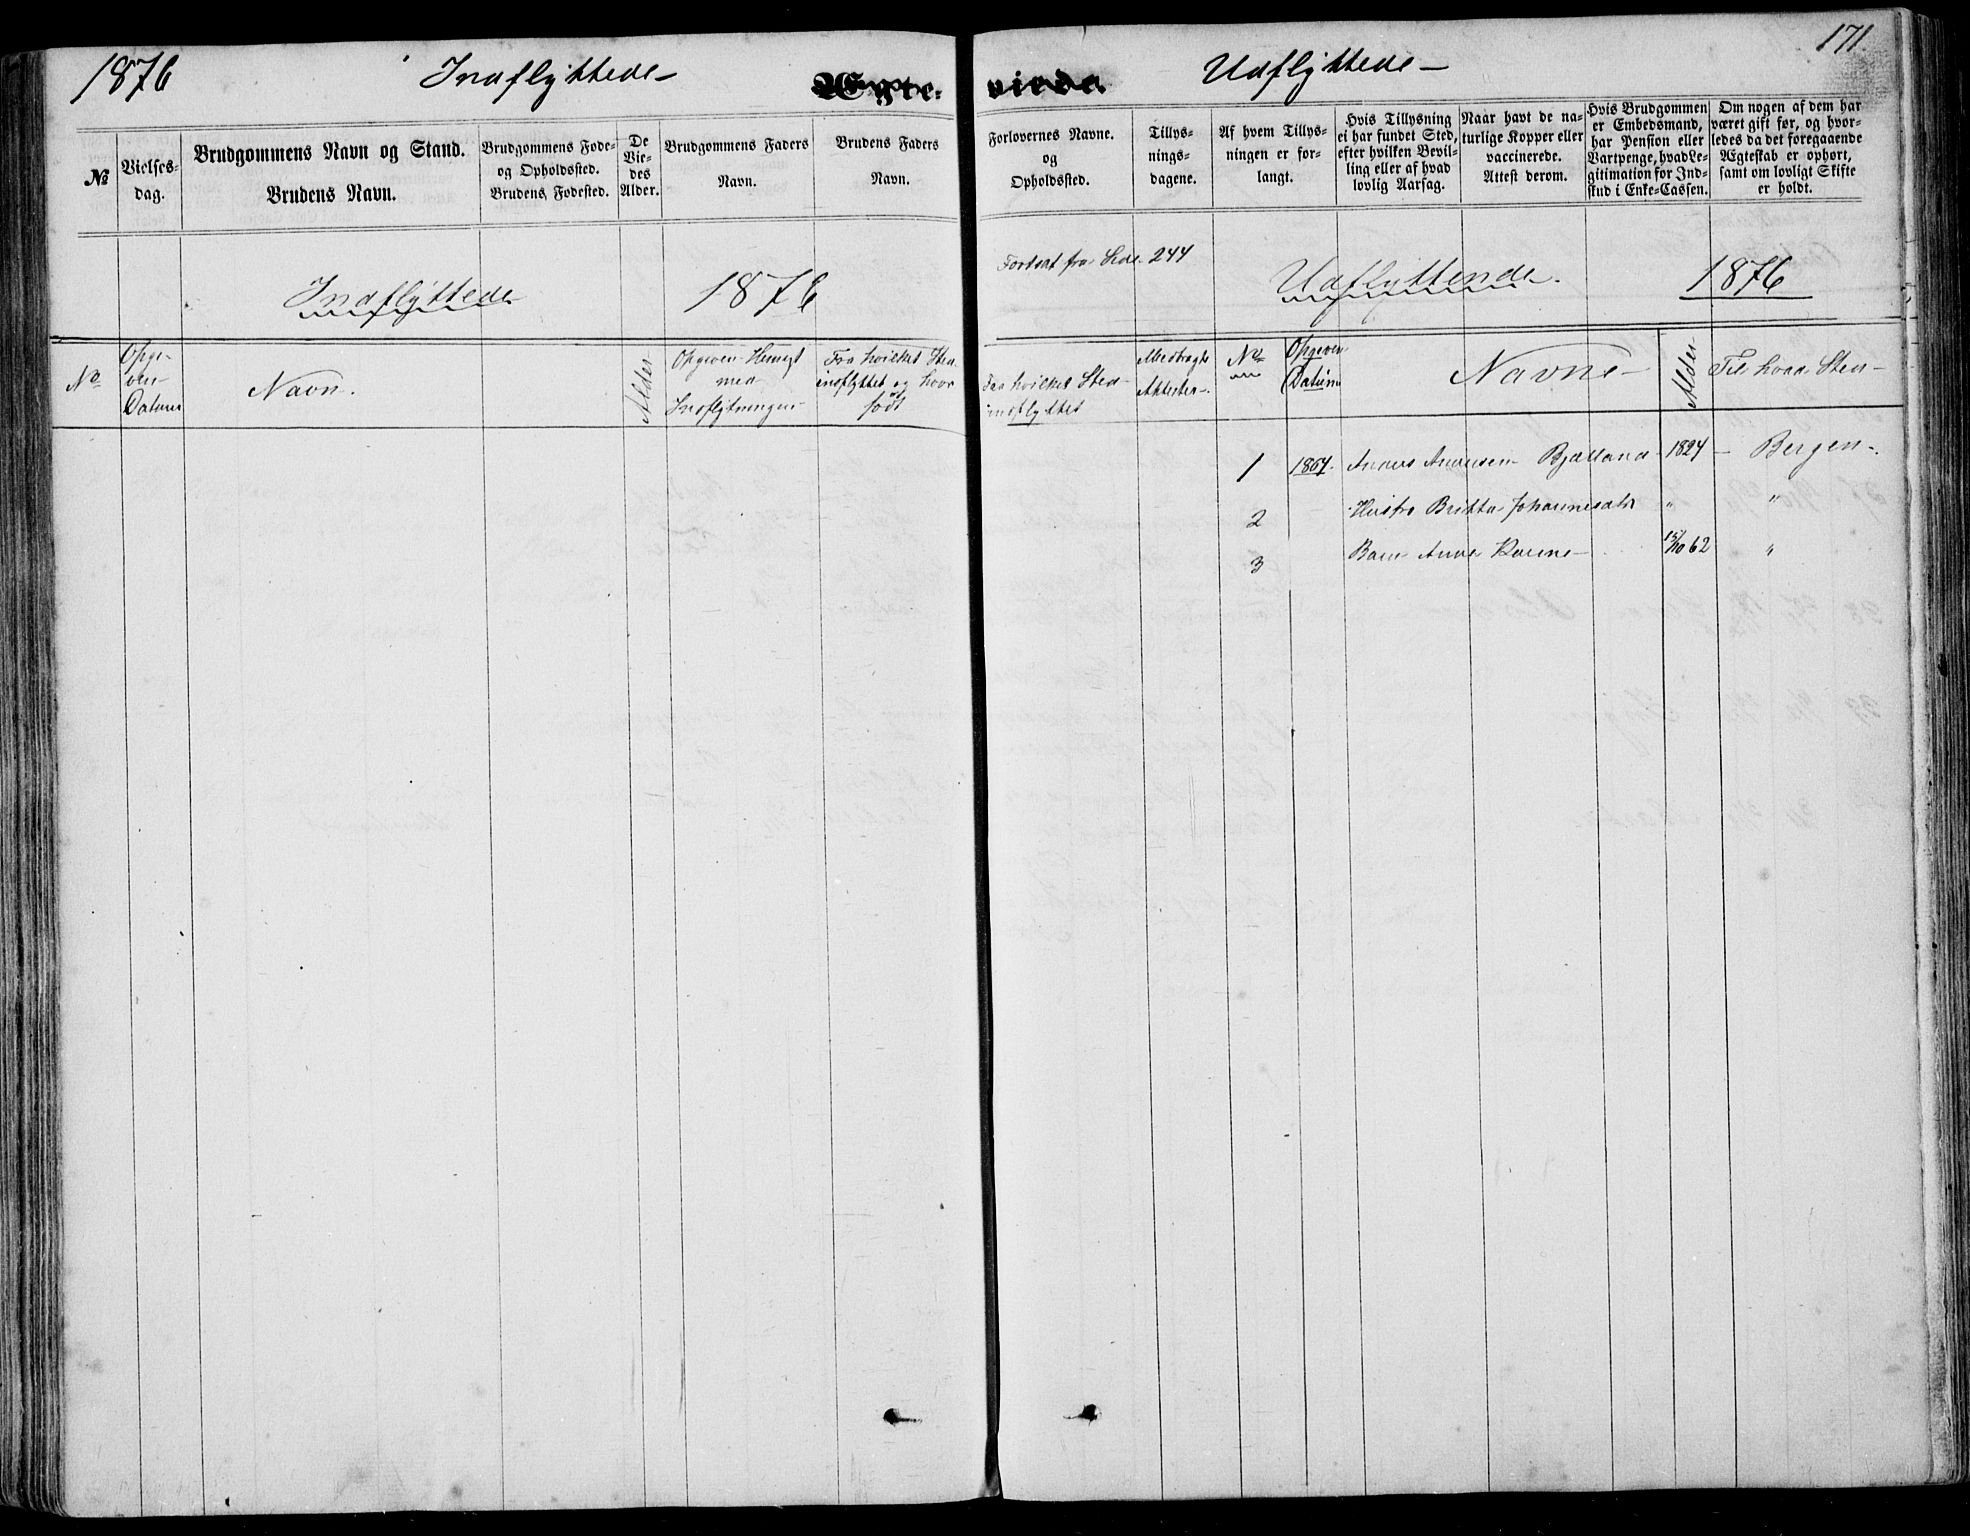 1876 Indflyttede
Ægte-
№
Vielses-
dag.
Brudgommens Navn og Stand.
Brudens Navn.
Brudgommens Føde-
og Opholdssted.
Brudens Fødested.
De
Vie-
des
Alder.
Brudgommens Faders
Navn.
Brudens Faders
Navn.
Indflyttede 1876
No
Opgi-
ven
Datum
Navn.
Alder
Opgiven Hensigt
med
Indflytningen
Fra hvilket Sted
indflyttet og hvor
født
171.
Udflyttede
viede.
Forlovernes Navne.
og
Opholdssted.
Tillys-
nings-
dagene.
Af hvem Tillys-
ningen er for-
langt.
Hvis Tillysning
ei har fundet Sted,
efter hvilken Bevil-
ling eller af hvad
lovlig Aarsag.
Naar havt de na-
turlige Kopper eller
vaccinerede.
Attest derom.
Hvis Brudgommen
er Embedsmand,
har Pension eller
Vartpenge, hvad Le-
gitimation for Ind-
skud i Enke-Cassen.
Om nogen af dem har
været gift før, og hvor-
ledes da det foregaaende
Ægteskab er ophørt,
samt om lovligt Skifte
er holdt.
Fortsat fra Side 244
Udflyttende. 1876
Fra hvilket Sted
indflyttet
Medbragte
Attester
No
Opgiven
Datum
Navne
Alder
Til hvad Sted
1 1864. Anders Andersen Bjelland 1824 Bergen
2 Hustro Britta Johannesdtr " "
3 Barn Anne Karine 15/10 62 "